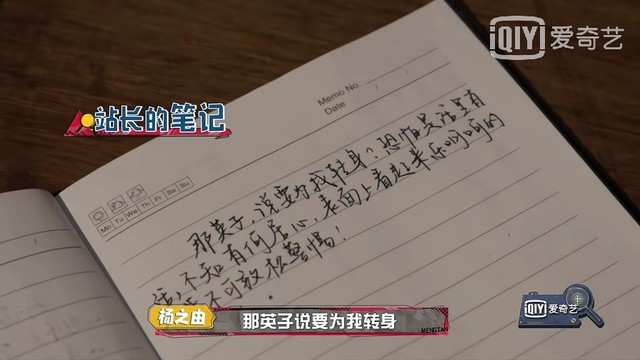 iQIYI 爱奇艺
站长的笔记
Memo No.
Date / /
Mo Tu We Th Fr Sa Su
那英子,说要为我转身?恐怕是活没有
活,不知有何居心,表面上看起来乐呵呵的
不可放松警惕!
杨之由
那英子说要为我转身
iQIYI 爱奇艺
MENGTAN